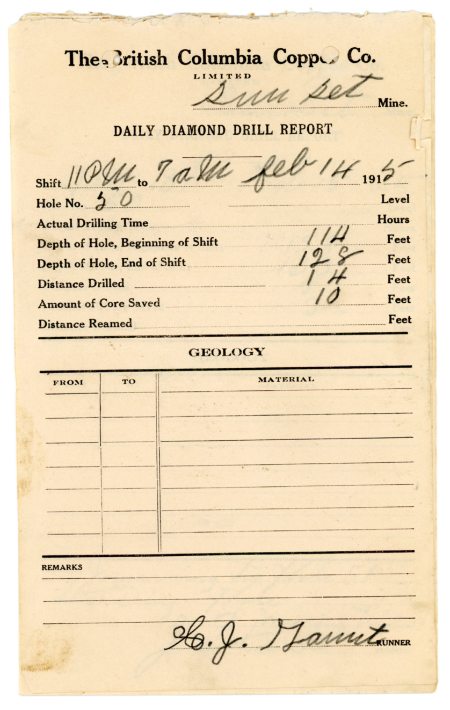 The British Columbia Copper Co.
LIMITED
Sunset Mine.
DAILY DIAMOND DRILL REPORT
Shift 11 PM to 7 AM Feb 14 1915
Hole No. 50 Level
Actual Drilling Time Hours
Depth of Hole, Beginning of Shift 114 Feet
Depth of Hole, End of Shift 128 Feet
Distance Drilled 14 Feet
Amount of Core Saved 10 Feet
Distance Reamed Feet
GEOLOGY
FROM TO MATERIAL
REMARKS
J. RUNNER